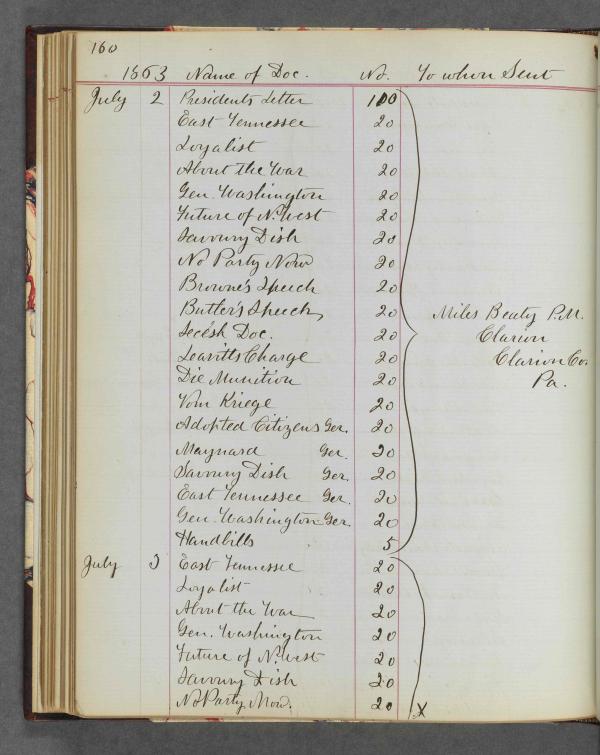 160
1863 Name of Doc. No. To whom Sent
July 2 Presidents Letter 100
East Tennessee 20
Loyalist 20
About the War 20
Gen. Washington 20
Future of N. West 20
Savoury Dish 20
No Party Now 20
Browne's Speech 20
Butler's Speech 20 Miles Beaty P.M.
Secesh Doc. 20 Clarion
Learitts Charge 20 Clarion Co.
Die Munition 20 Pa.
Vom Kriege 20
Adopted Citizens Ger. 20
Maynard Ger. 20
Savoury Dish Ger. 20
East Tennessee Ger. 20
Gen. Washington Ger. 20
Handbills 5
July 3 East Tennessee 20
Loyalist 20
About the War 20
Gen. Washington 20
Future of N. West 20
Savoury Dish 20
No Party Now. 20 X